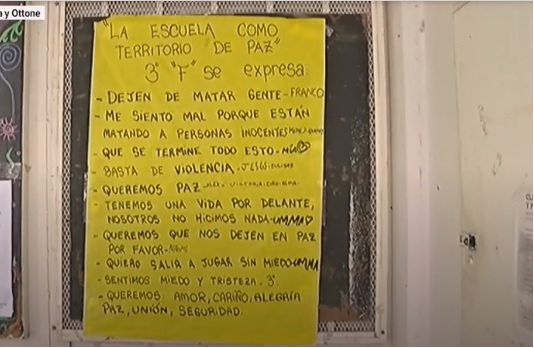 a y Ottone
"LA ESCUELA COMO
TERRITORIO DE PAZ"
3° "F" se expresa:
- DEJEN DE MATAR GENTE-FRANCO
- ME SIENTO MAL PORQUE ESTÁN
MATANDO A PERSONAS INOCENTES
- QUE SE TERMINE TODO ESTO-MÍA
- BASTA DE VIOLENCIA.
- QUEREMOS PAZ
- TENEMOS UNA VIDA POR DELANTE,
NOSOTROS NO HICIMOS NADA-UMMA
- QUEREMOS QUE NOS DEJEN EN PAZ
POR FAVOR-
- QUIERO SALIR A JUGAR SIN MIEDO-UMMA
- SENTIMOS MIEDO Y TRISTEZA. 3°
- QUEREMOS: AMOR, CARIÑO, ALEGRÍA
PAZ, UNIÓN, SEGURIDAD.